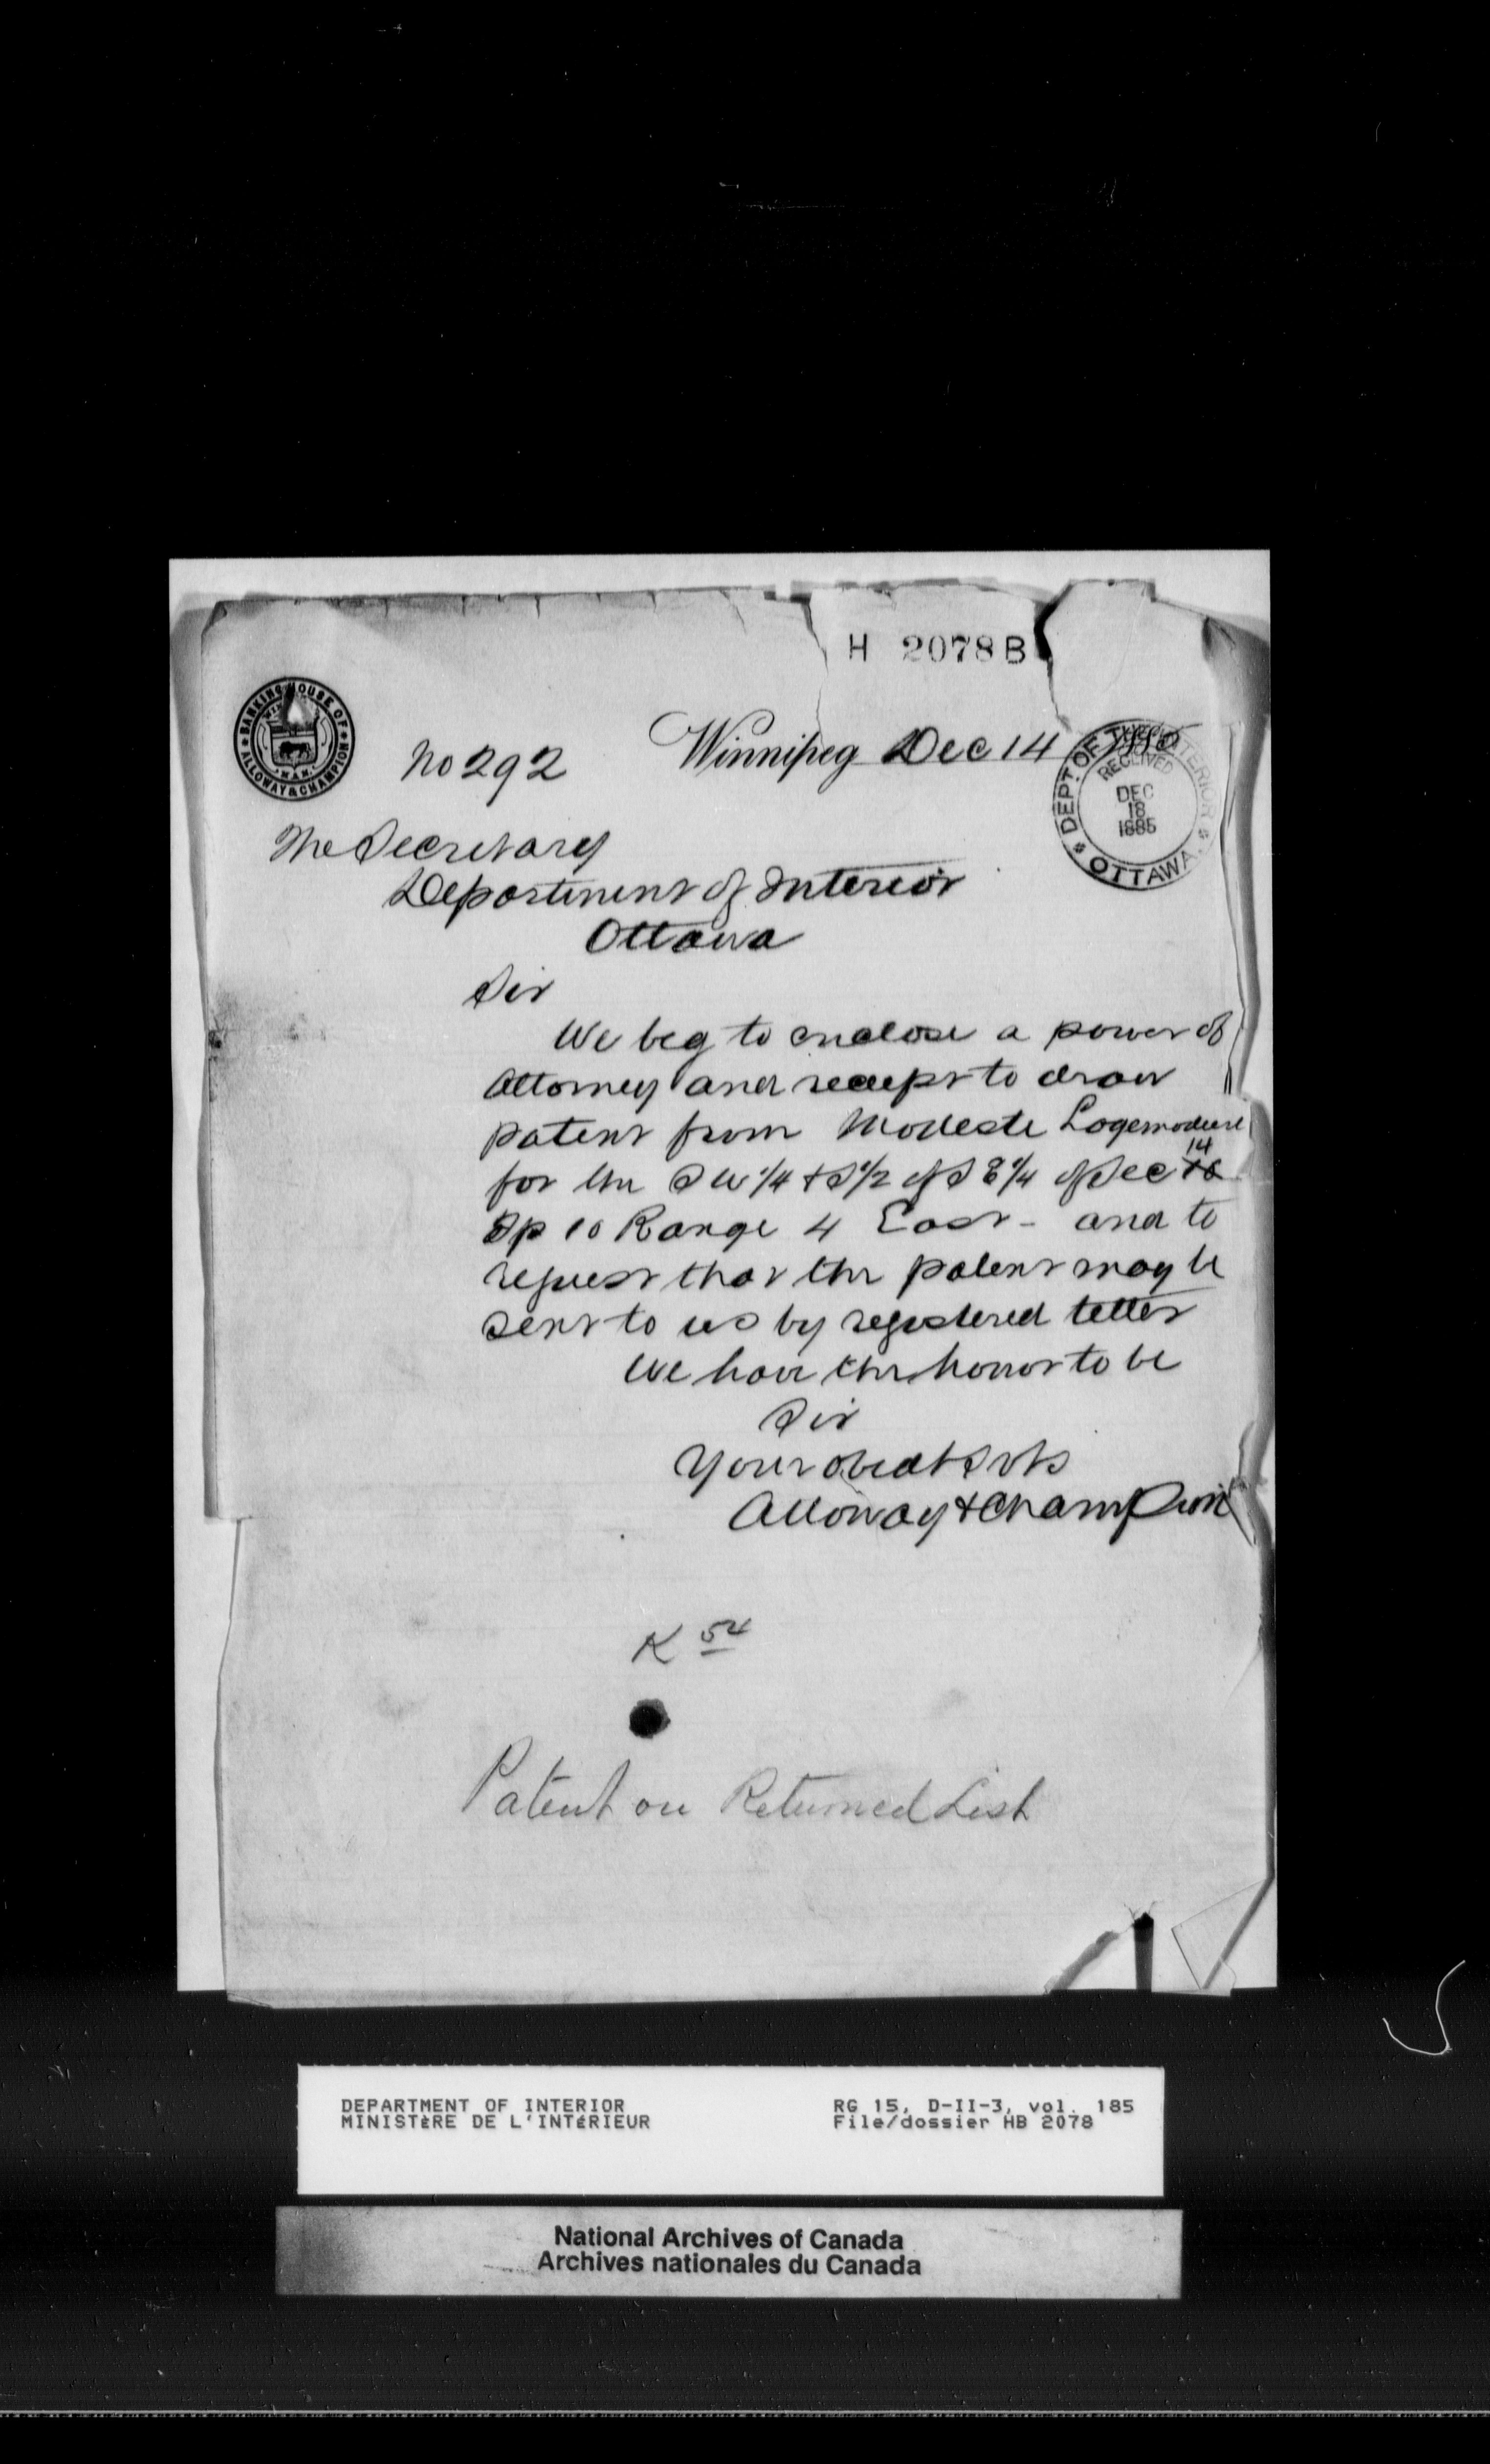 H 2078 B
BANKING HOUSE OF ALLOWAY & CHAMPION
No 292
Winnipeg Dec 14 1885
DEPT. OF THE INTERIOR
RECEIVED
DEC
18
1885
OTTAWA.
The Secretary
Department of Interior
Ottawa
Sir
We beg to enclose a power of
Attorney and receipt to draw
patent from Modeste Lagemodiere
14
for the SW 1/4 + S 1/2 of S E 1/4 of Sec
Tp 10 Range 4 East - and to
request that the patent may be
sent to us by registered letter
We have the honor to be
Sir
Your obedt Svts
Alloway & Champion
K 54
Patent on Returned List
DEPARTMENT OF INTERIOR
MINISTÈRE DE L'INTÉRIEUR
RG 15, D-II-3, vol. 185
File/dossier HB 2078
National Archives of Canada
Archives nationales du Canada